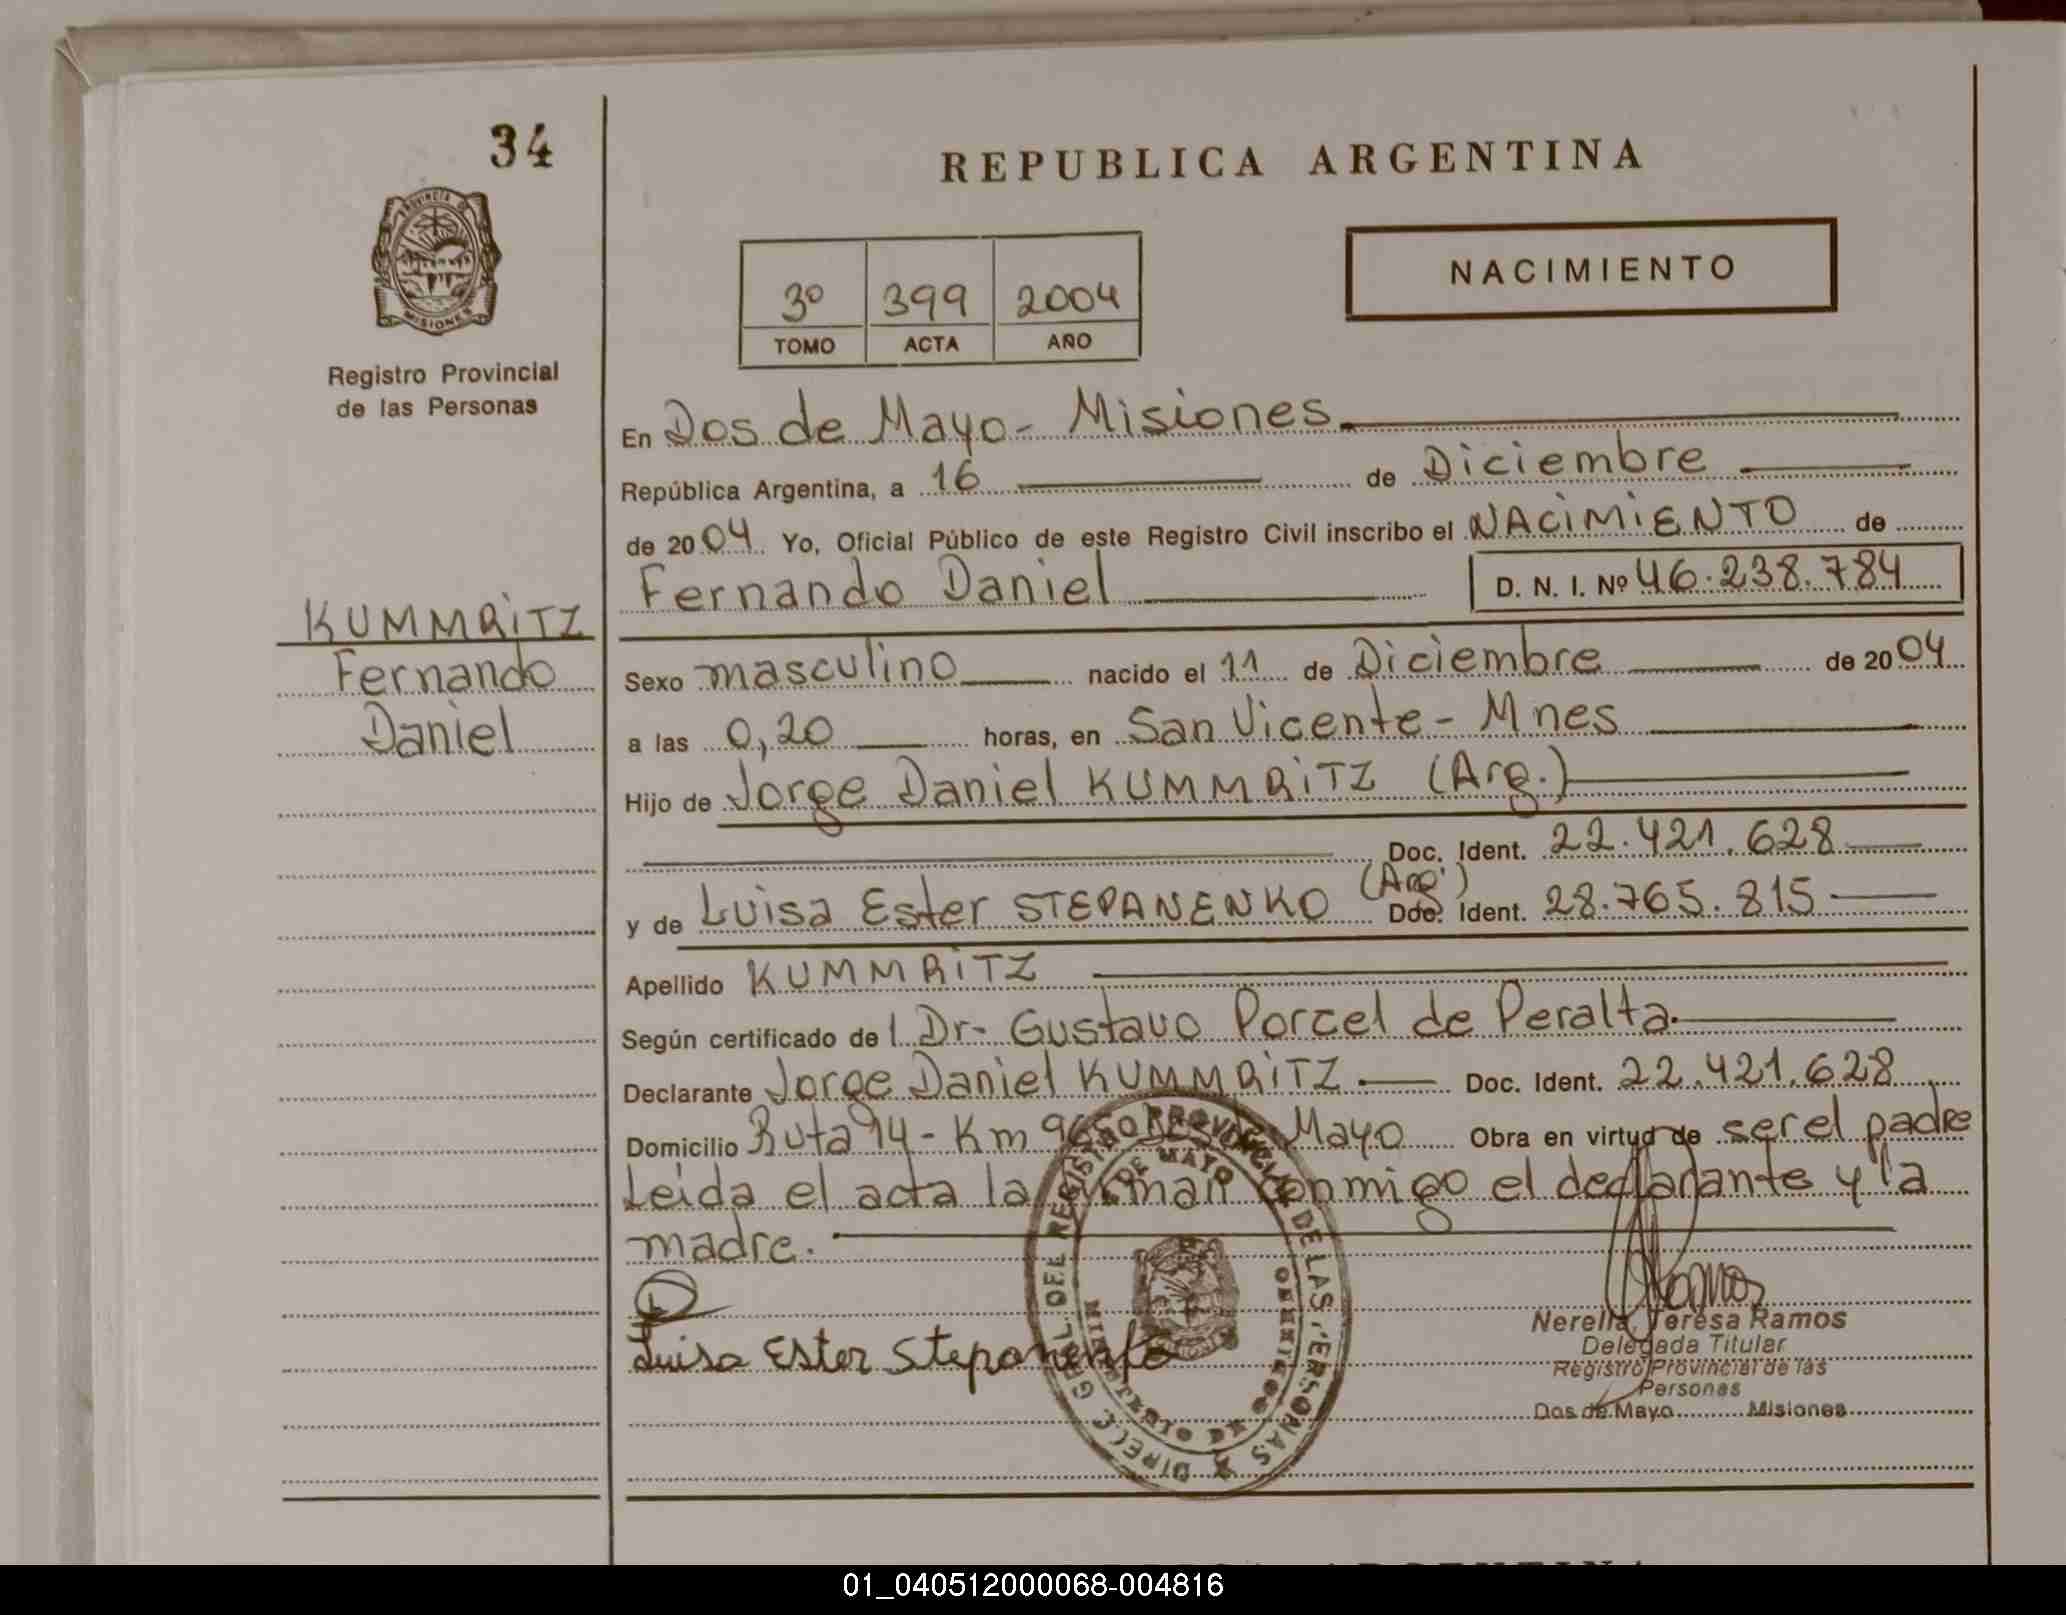 34
REPUBLICA ARGENTINA
PROVINCIA DE
MISIONES
NACIMIENTO
3º 399 2004
TOMO ACTA AÑO
Registro Provincial
de las Personas
En Dos de Mayo - Misiones
República Argentina, a 16 de Diciembre
de 2004 Yo, Oficial Público de este Registro Civil inscribo el NACIMIENTO de
Fernando Daniel D. N. I. Nº 46.238.784
KUMMRITZ
Fernando
Daniel
Sexo masculino nacido el 11 de Diciembre de 2004
a las 0,20 horas, en San Vicente - Mnes
Hijo de Jorge Daniel KUMMRITZ (Arg.)
Doc. Ident. 22.421.628
y de Luisa Ester STEPANENKO (Arg.) Doc. Ident. 28.765.815
Apellido KUMMRITZ
Según certificado de l Dr. Gustavo Porcel de Peralta.
Declarante Jorge Daniel KUMMRITZ Doc. Ident. 22.421.628
Domicilio Ruta 14 - Km Mayo Obra en virtud de ser el padre
Leida el acta la firman conmigo el declarante y la
madre.
Luisa Ester Stepanenko
DIRECC. GRAL. DEL REGISTRO PROVINCIAL DE LAS PERSONAS
DOS DE MAYO
Nerella Teresa Ramos
Delegada Titular
Registro Provincial de las
Personas
Dos de Mayo Misiones
01_040512000068-004816